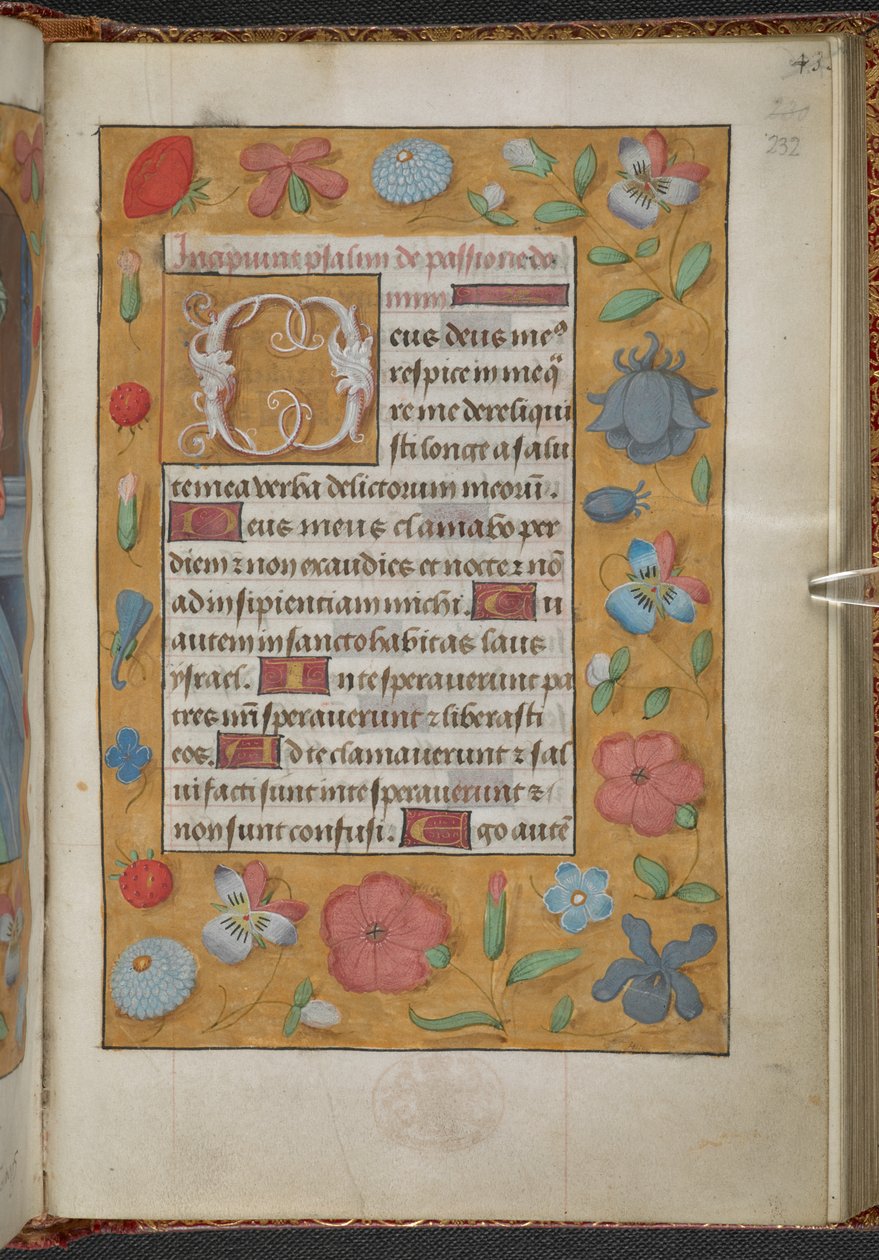 43.
240
232
Incipiunt psalmi de passione do
mini
Deus deus meꝰ
respice in me q̄
re me dereliqui
sti longe a salu
te mea verba delictorum meoru᷑.
Deus meus clamabo per
diem ⁊ non exaudies et nocte ⁊ nō
ad insipientiam michi. Tu
autem in sancto habitas laus
ysrael. In te sperauerunt pa
tres nr̄i sperauerunt ⁊ liberasti
eos. Ad te clamauerunt ⁊ sal
ui facti sunt in te sperauerunt ⁊
non sunt confusi. Ego autē